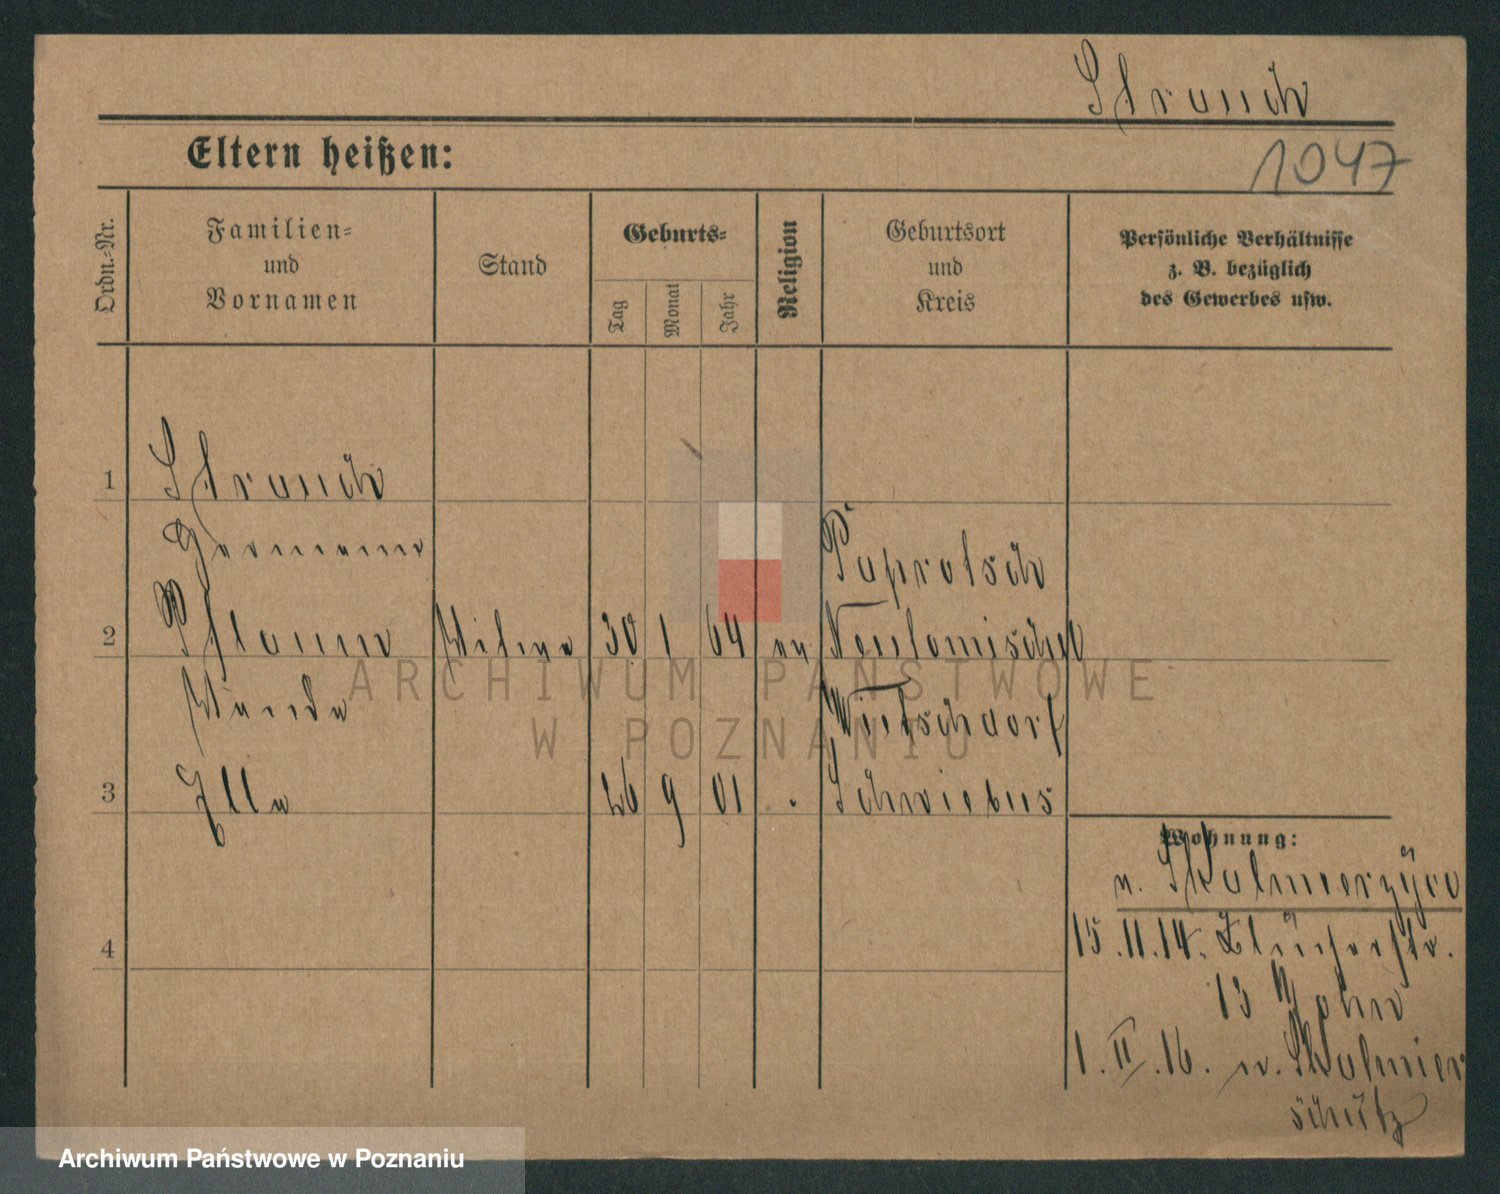 Strauch
Eltern heißen:
1047
Ordn.-Nr.
Familien-
und
Vornamen
Stand
Geburts-
Tag
Monat
Jahr
Religion
Geburtsort
und
Kreis
Persönliche Verhältnisse
z. B. bezüglich
des Gewerbes usw.
1 Strauch
Paprotsch
2 Pflaum Witwe 30 1 64 ev Neutomischel
Wanda Wietschdorf
3 Ella 26 9 01 . Schwiebus
Wohnung:
n. Skalmierzyce
15.11.14. Blücherstr.
13
4
1.II.16. n. Skalmier
schütz
ARCHIWUM PAŃSTWOWE
W POZNANIU
Archiwum Państwowe w Poznaniu